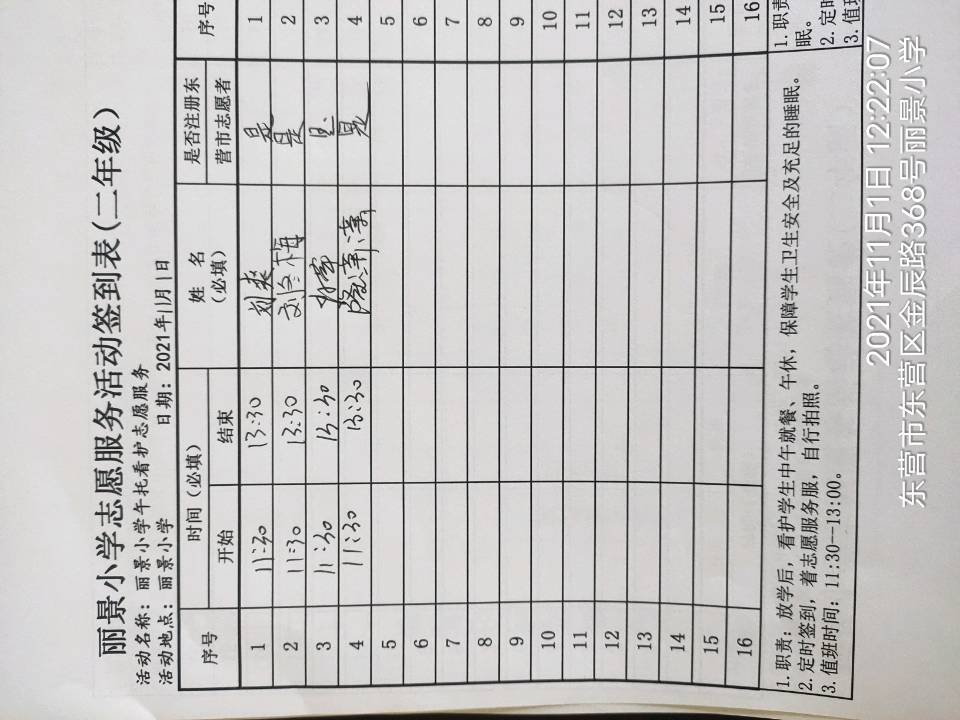 丽景小学志愿服务活动签到表(二年级)
活动名称：丽景小学午托看护志愿服务
活动地点：丽景小学 日期：2021年11月1日
序号 时间（必填） 姓 名（必填） 是否注册东营市志愿者 序号
开始 结束
1 11:30 13:30 刘爽 是 1
2 11:30 13:30 刘冬梅 是 2
3 11:30 13:30 是 3
4 11:30 13:30 是 4
5 5
6 6
7 7
8 8
9 9
10 10
11 11
12 12
13 13
14 14
15 15
16 16
1.职责：放学后，看护学生中午就餐、午休，保障学生卫生安全及充足的睡眠。
2.定时签到，着志愿服务服，自行拍照。
3.值班时间：11:30--13:00。
1.职责
眠。
2.定时
3.值班
2021年11月1日 12:22:07
东营市东营区金辰路368号丽景小学